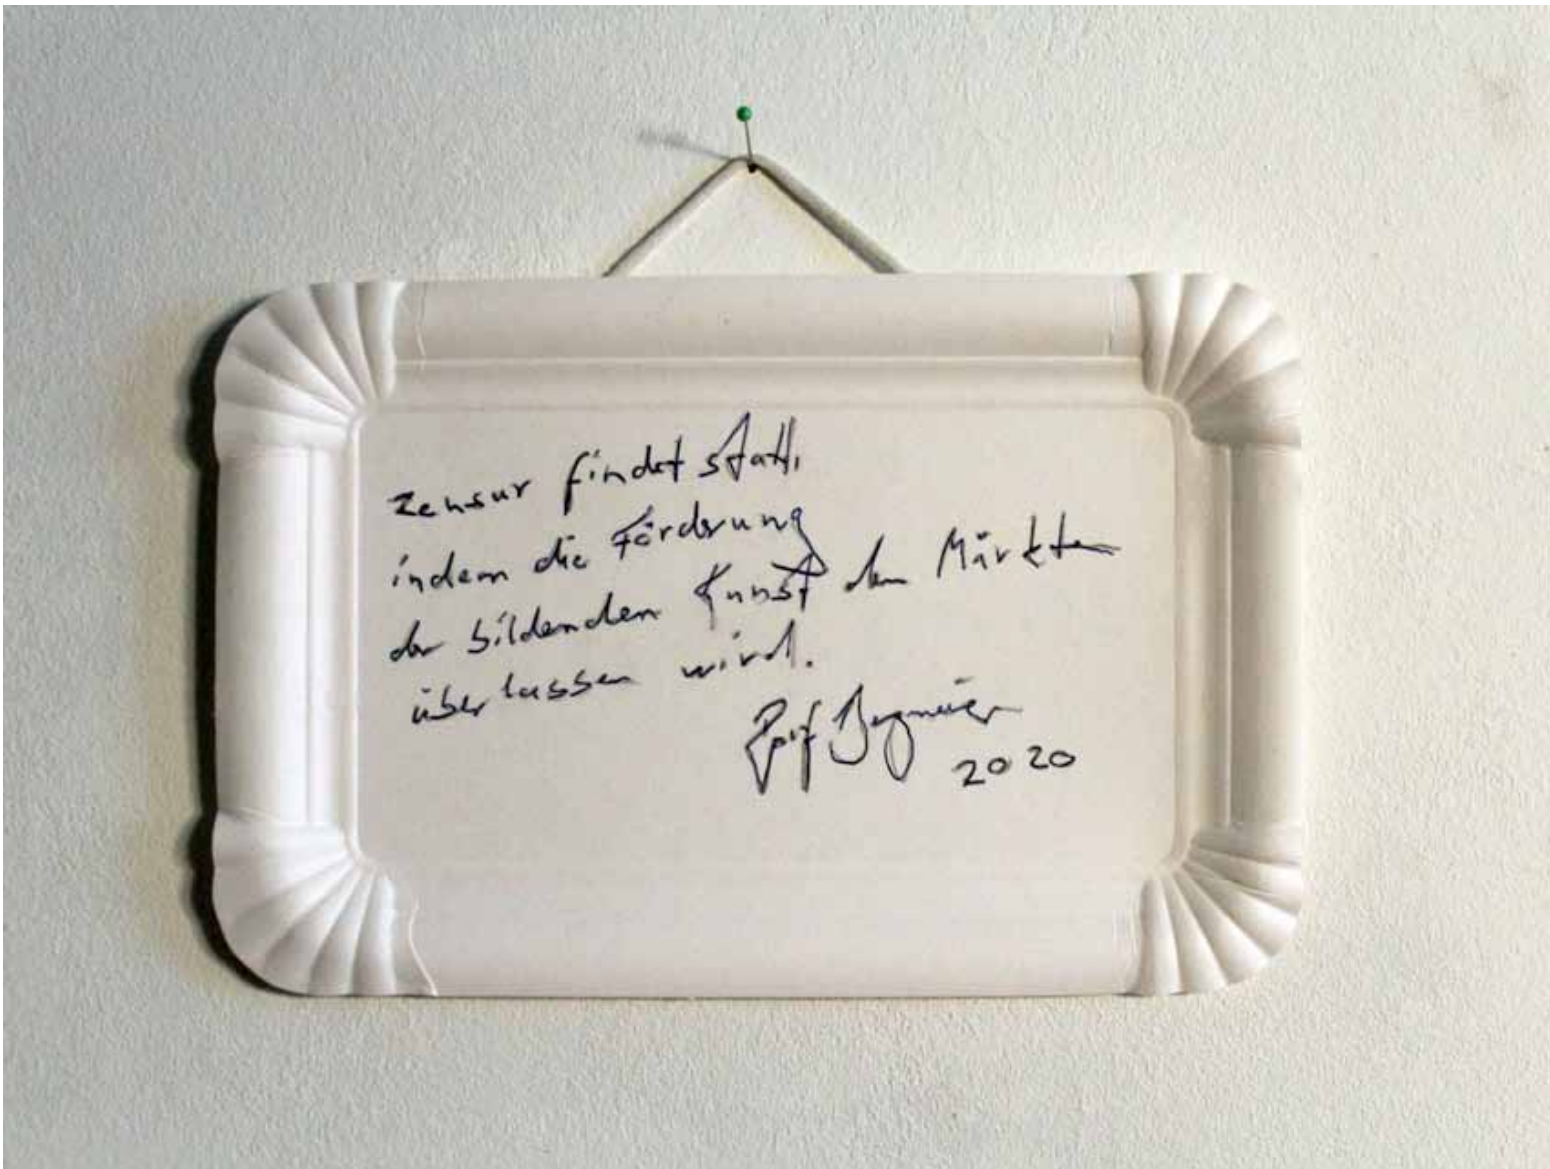 Zensur findet statt,
indem die Förderung
der bildenden Kunst den Märkten
überlassen wird.
2020